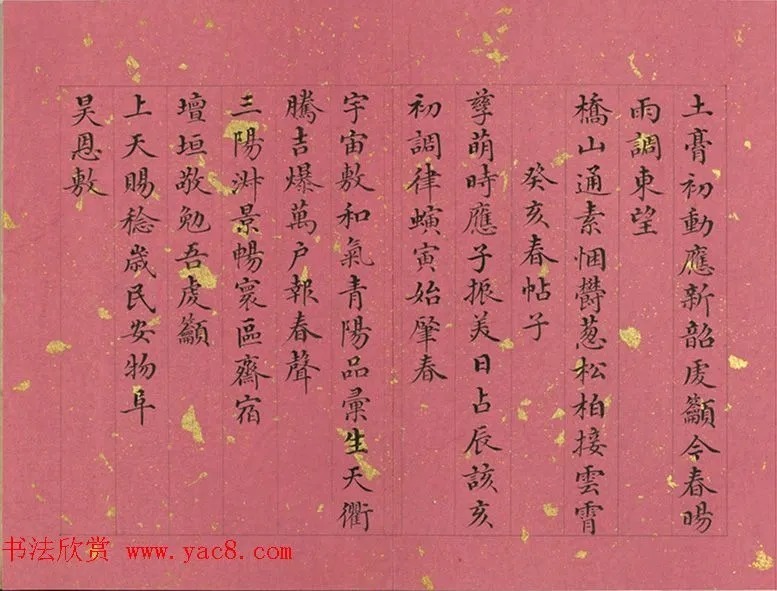 土膏初動應新韶虔籲今春暘
雨調東望
橋山通素悃鬱葱松柏接雲霄
癸亥春帖子
孳萌時應子振美日占辰該亥
初調律螾寅始肇春
宇宙敷和氣青陽品彙生天衢
騰吉爆萬户報春聲
三陽淑景暢寰區齋宿
壇垣敬勉吾虔籲
上天賜稔歲民安物阜
昊恩敷
书法欣赏 www.yac8.com